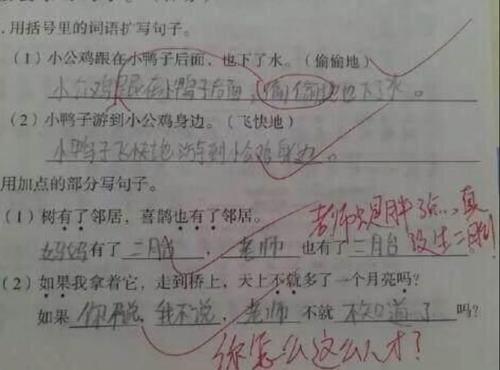 .用括号里的词语扩写句子。
(1)小公鸡跟在小鸭子后面,也下了水。(偷偷地)
小公鸡跟在小鸭子后面,偷偷地也下了水。
(2)小鸭子游到小公鸡身边。(飞快地)
小鸭子飞快地游到小公鸡身边。
用加点的部分写句子。
(1)树有了邻居,喜鹊也有了邻居。
妈妈有了二胎,老师也有了二胎
老师只是胖了点...真没生二胎!
(2)如果我拿着它,走到桥上,天上不就多了一个月亮吗?
如果你不说,我不说,老师不就不知道了吗?
你怎么这么人才?